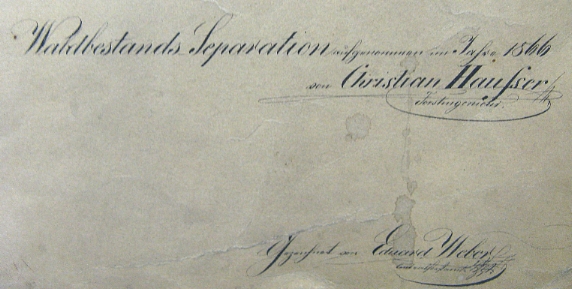 Waldbestands Separation aufgenommen im Jahre 1866
von Christian Hausser
Forstingenieur.
Gezeichnet von Eduard Weber